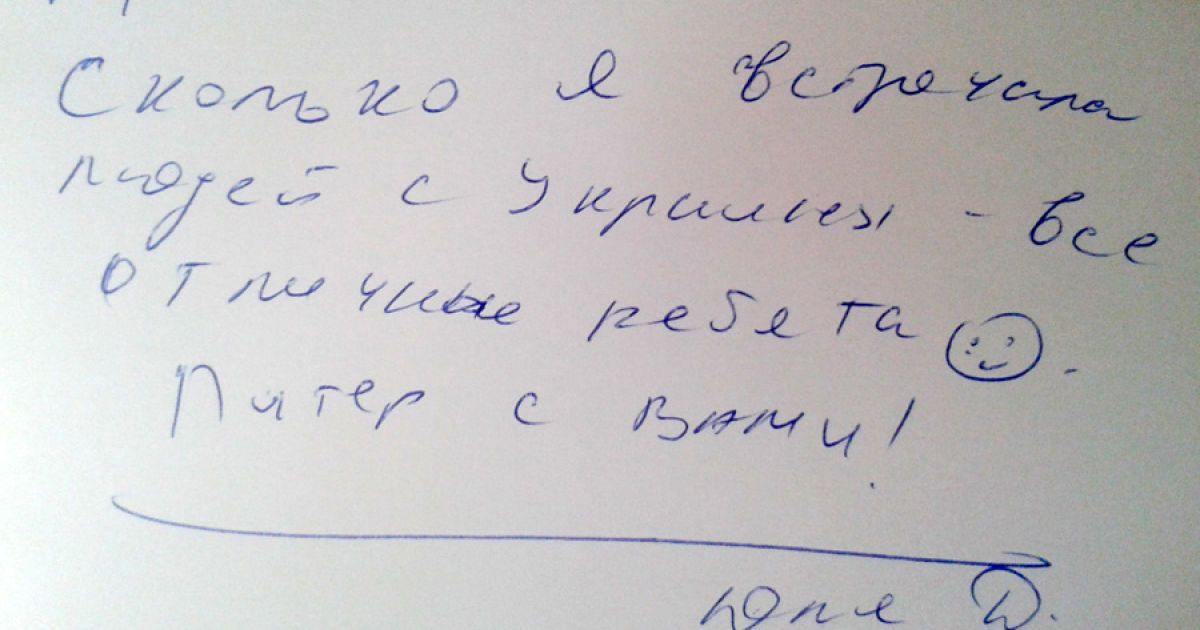 Сколько я встречала
людей с Украины - все
отличные ребята.
Питер с вами!
Юля D.